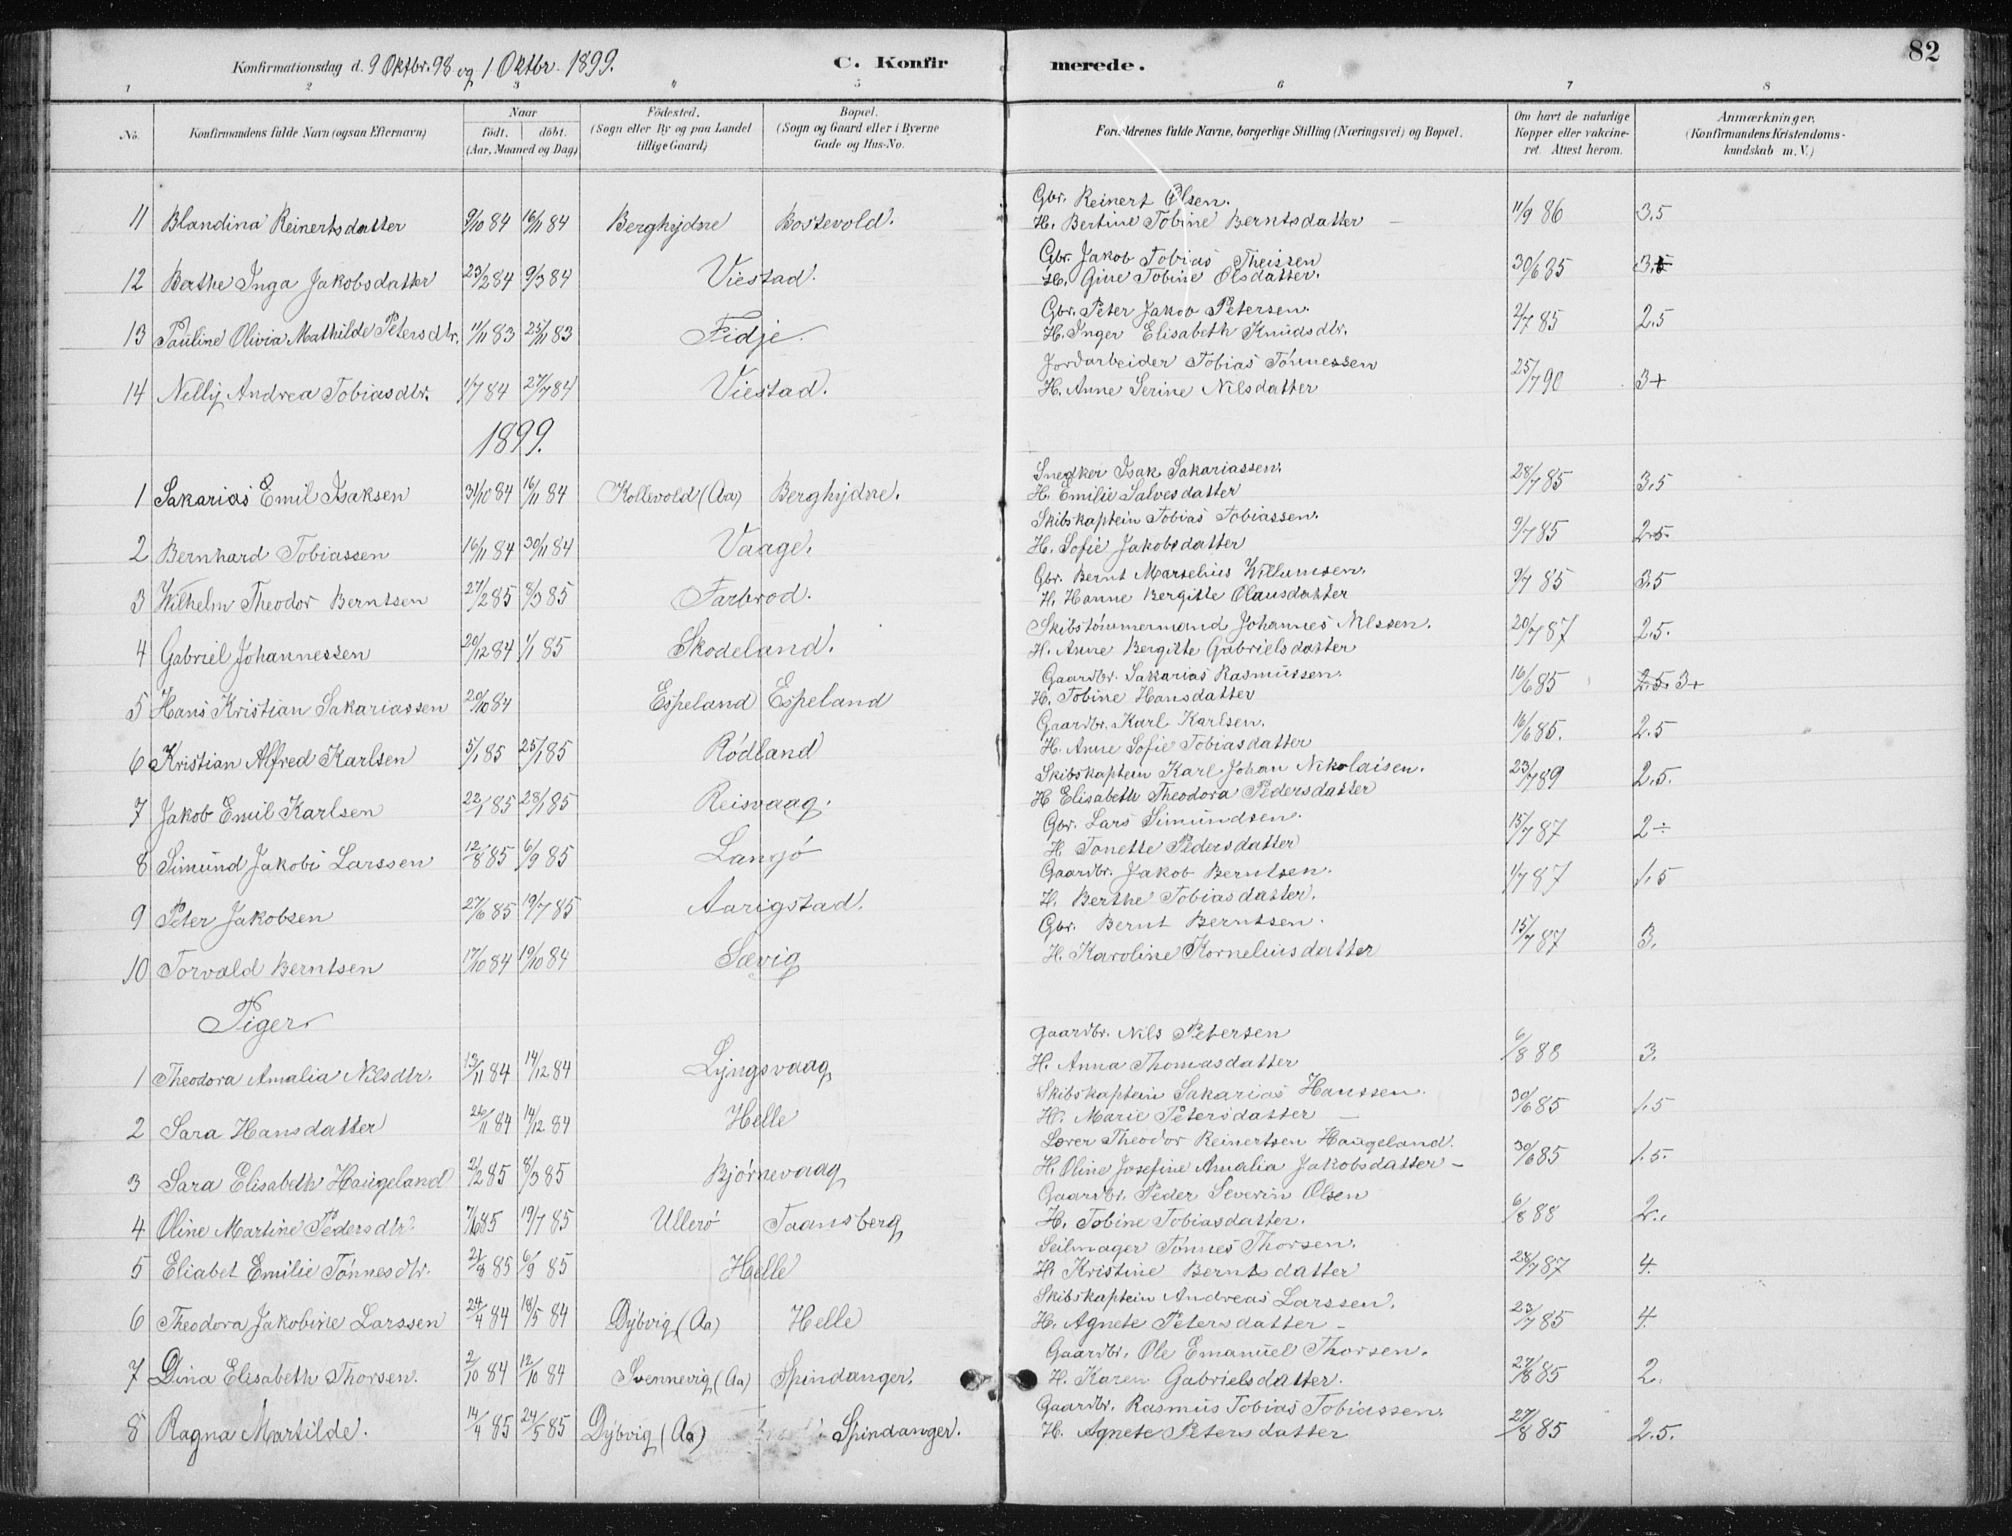 82
Konfirmationsdag d. 9 Oktbr. 98 og 1 Oktbr. 1899.
C. Konfirmerede.
1 2 3 4 5 6 7 8
No.
Konfirmandens fulde Navn (ogsaa Efternavn)
Naar
født. døbt.
(Aar, Maaned og Dag)
Fødested.
(Sogn eller By og paa Landet
tillige Gaard)
Bopæl.
(Sogn og Gaard eller i Byerne
Gade og Hus-No.
Forældrenes fulde Navne, borgerlige Stilling (Næringsvei) og Bopæl.
Om havt de naturlige
Kopper eller vakcine-
ret. Attest herom.
Anmærkninger.
(Konfirmandens Kristendoms-
kundskab m. V.)
Gbr. Reinert Olsen.
11 Blandina Reinertsdatter 9/10 84 16/11 84 Berghydne Kostevold. H. Bertine Tobine Berntsdatter 11/9 86 3.5
Gbr. Jakob Tobias Theissen
12 Berthe Inga Jakobsdatter 23/2 84 9/3 84 Viestad. H. Gine Tobine Olsdatter. 30/6 85 3.5
Gbr. Peter Jakob Petersen.
13 Pauline Olivia Mathilde Petersdtr. 11/11 83 25/11 83 Fidje. H. Inger Elisabeth Knudsdtr. 2/7 85 2.5
Jordarbeider Tobias Tønnessen
14 Nelly Andrea Tobiasdtr. 1/7 84 27/7 84 Viestad. H. Anne Serine Nilsdatter 25/7 90 3+
1899.
Snedker Isak Sakariassen.
1 Sakarias Emil Isaksen 31/10 84 16/11 84 Kollevold (Aa) Berghydne. H. Emilie Salvesdatter 28/7 85 3.5
Skibskaptein Tobias Tobiassen.
2 Bernhard Tobiassen 16/11 84 30/11 84 Vaage. H. Sofie Jakobsdatter 9/7 85 2.5.
Gbr. Bernt Marselius Villumsen.
3 Wilhelm Theodor Berntsen 27/2 85 8/3 85 Farbrod. H. Hanne Bergitte Olausdatter 9/7 85 3.5
Skibstømmermand Johannes Nilssen.
4 Gabriel Johannessen 20/12 84 1/1 85 Skodeland. H. Anne Bergitte Gabrielsdatter 20/7 87 2.5.
Gaardbr. Sakarias Rasmussen.
5 Hans Kristian Sakariassen 20/10 84 Espeland Espeland H. Tobine Hansdatter 16/6 85 2.5. 3+
Gaardbr. Karl Karlsen.
6 Kristian Alfred Karlsen 5/1 85 25/1 85 Rødland H. Anne Sofie Tobiasdatter 16/6 85. 2.5
Skibskaptein Karl Johan Nikolaisen.
7 Jakob Emil Karlsen 22/1 85 28/1 85 Reisvaag. H Elisabeth Theodora Pedersdatter 23/7 89 2.5.
Gbr. Lars Simundsen.
8 Simund Jakobi Larssen 12/8 85 6/9 85 Lansjø H. Tonette Pedersdatter 15/7 87 2÷
Gaardbr. Jakob Berntsen.
9 Peter Jakobsen 27/6 85 19/7 85 Aarigstad. H. Berthe Tobiasdatter. 1/7 87 1.5
Gbr. Bernt Berntsen.
10 Torvald Berntsen 17/10 84 19/10 84 Sævig H. Karoline Korneliusdatter 15/7 87 3.
Piger
Gaardbr. Nils Petersen
1 Theodora Amalia Nilsdtr. 13/11 84 14/12 84 Lyngsvaag H. Anna Thomasdatter 6/8 88 3.
Skibskaptein Sakarias Hanssen.
2 Sara Hansdatter 26/11 84 14/12 84 Helle H. Marie Petersdatter 30/6 85 1.5
Lærer Theodor Reinertsen Haugeland.
3 Sara Elisabeth Haugeland 2/2 85 8/3 85 Bjørnevaag H. Oline Josefine Amalia Jakobsdatter 30/6 85 1.5.
Gaardbr. Peder Severin Olsen
4 Oline Martine Pedersdtr. 7/6 85 19/7 85 Ullerø Taansberg H. Tobine Tobiasdatter. 6/8 88 2.
Seilmager Tønnes Thorsen.
5 Eliabet Emilie Tønnesdtr. 21/8 85 6/9 85 Helle H. Kristine Berntsdatter 28/7 87 4.
Skibskaptein Andreas Larssen.
6 Theodora Jakobine Larssen 24/4 84 18/5 84 Dybvig (Aa) Helle H. Agnete Petersdatter 23/7 85 4.
Gaardbr. Ole Emanuel Thorsen.
7 Dina Elisabeth Thorsen. 2/10 84 12/10 84 Svennevig (Aa) Spindanger. H. Karen Gabrielsdatter. 27/8 85 2.
Gaardbr. Rasmus Tobias Tobiassen.
8 Ragna Martilde. 14/4 85 24/5 85 Dybvig (Aa) Spindanger. H. Agnete Petersdatter 27/8 85 2.5.